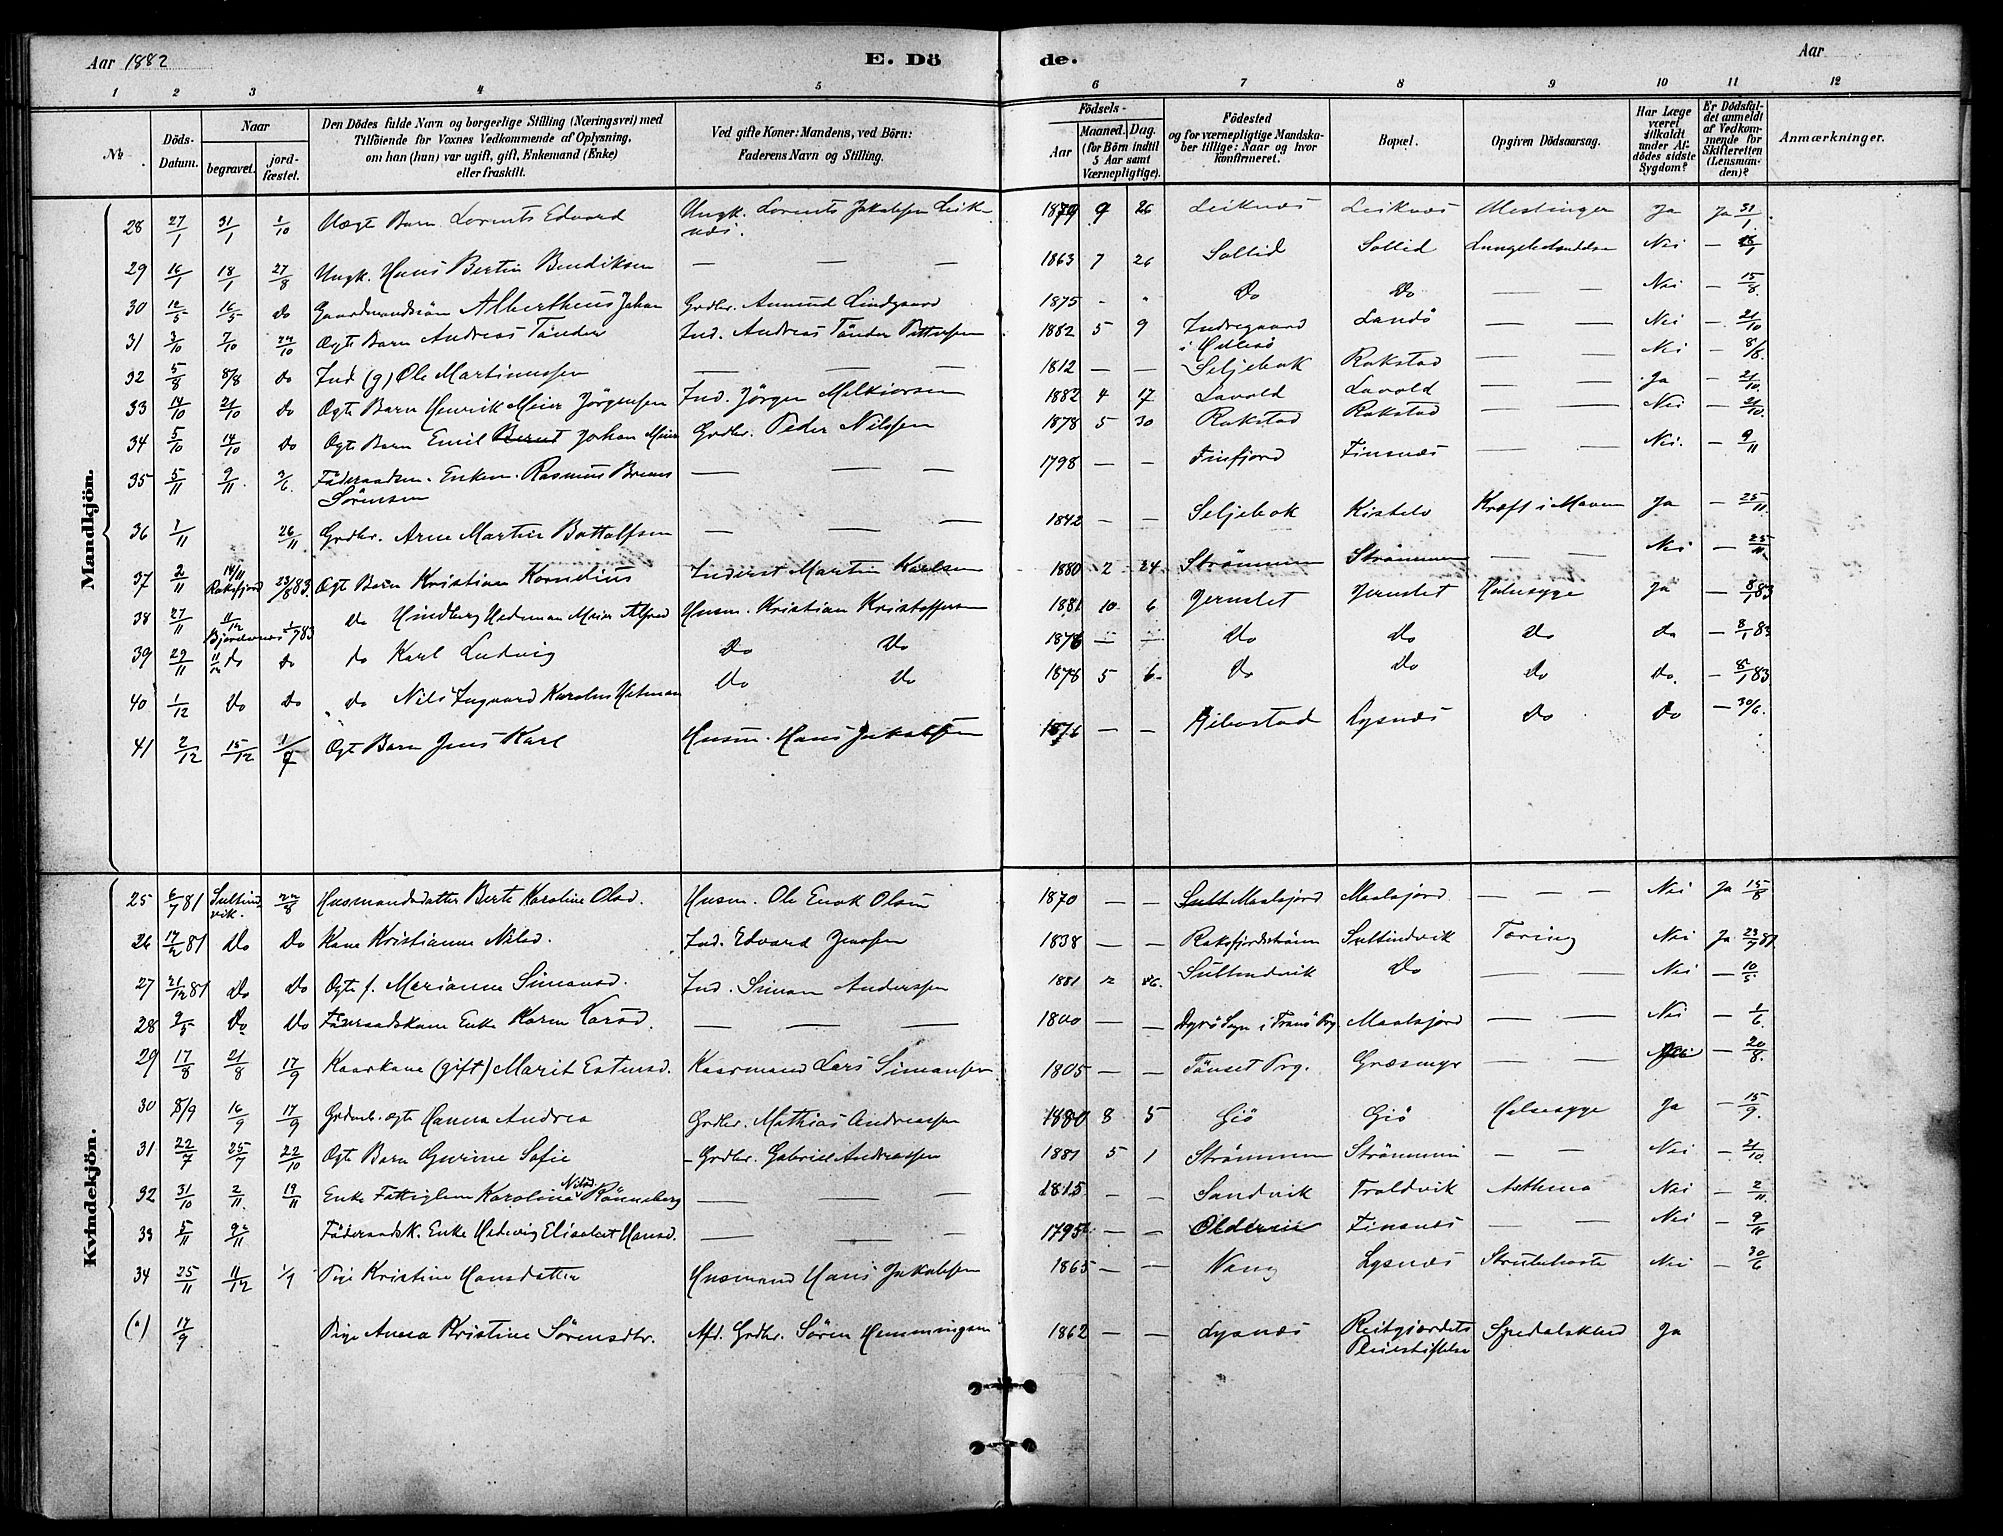 Aar 1882
E. Dö de.
Aar
1 2 3 4 5 6 7 8 9 10 11 12
№
Döds-Datum.
Naar
begravet. jordfæstet.
Den Dödes fulde Navn og borgerlige Stilling (Næringsvei) med
Tilföiende for Voxnes Vedkommende af Oplysning,
om han (hun) var ugift, gift, Enkemand (Enke)
eller fraskilt.
Ved gifte Koner: Mandens, ved Börn:
Faderens Navn og Stilling.
Födsels-
Aar
Maaned. Dag.
(for Börn indtil
5 Aar samt
Værnepligtige).
Födested
og for værnepligtige Mandskaber
tillige: Naar og hvor
konfirmeret.
Bopæl.
Opgiven Dödsaarsag.
Har Læge
været
tilkaldt
under Afdödes
sidste
Sygdom?
Er Dödsfaldet
anmeldt
af Vedkommende
for
Skifteretten
(Lensmanden)?
Anmærkninger.
Mandkjön.
28 27/1 31/1 1/10 Uægte Barn Lorents Edvard Ungk. Lorents Jakobsen Leiknæs. 1879 9 26 Leiknæs Leiknæs Ja Ja 31/1
29 16/1 18/1 27/8 Ungk. Hans Bertin Bendiksen — — — 1863 7 26 Sollid Sollid Lungebetændelse Nei —
30 12/5 16/5 do Gaardmandssøn Albertheus Johan Grdbr. Amund Lindgaard 1875 - " Do Do — — Nei — 15/8
31 3/10 7/10 22/10 Ægte Barn Andreas Tönder Ind. Andreas Tönder Pettersen 1882 5 9 Indregaard i Hillesö Landö — — Nei — 21/10
32 5/8 8/8 do Ind (g) Ole Martinussen — — — 1812 — — Seljebak Rakstad — — Nei — 8/8
33 14/10 21/10 do Ægte Barn Henrik Meier Jörgensen Ind. Jörgen Melkiorsen 1882 4 17 Lavold Lavold — — Ja — 21/10
34 5/10 14/10 do Ægte Barn Emil Bernt Johan Meier Grdbr. Peder Nilssen 1878 5 30 Rakstad Rakstad — — Nei — 21/10
35 5/11 9/11 Föderaadsm. Enkem. Rasmus Sörensen — — — 1798 — — Finfjord Finsnæs — — Nei. — 9/11
36 1/11 26/11 Grdbr. Arne Martin Bottolfsen — — — 1842 — — Seljebak Kistelv Kræft i Maven Ja — 25/11
37 2/11 14/11 Roksfjord 23/8 83. Ægt Barn Kristian Kornelius Inderst Martin Karlsen 1880 2 24 Strömmen Strömmen — — Nei — 25/11
38 27/11 11/12 Bjorelvnes 1/7 83 do Hindberg Hedeman Meier Alfred Husm. Kristian Kristoffersen 1881 10 6 Jernslet Jernslet Halssyge Ja — 8/1 83
39 29/11 11/12 do do do Karl Ludvig Do Do 1876 — — Do Do Do do — 8/1 83
40 1/12 Do Do do Nils Ingvard Karolus Hetman Do Do 1878 5 6 Do Do Do Do. — 8/1 83
41 2/12 15/12 1/7 Ægt Barn Jens Karl Husm. Hans Jakobsen 1876 — — Gibostad Lysnæs Do Do — 30/6.
Kvindekjön.
25 6/7 81 Sultindvik. 22/8 Husmandsdatter Berte Karoline Olsd. Husm. Ole Enok Olsen 1870 — — Sult Maalsjord Maalsjord — — — Nei Ja 15/8
26 17/2 81 Do Do Kone Kristianne Nilsd. Ind. Edvard Jenssen 1838 — — Roksfjordströmm Sultindvik Tæring Nei Ja 23/7 81
27 21/12 81 Do Do Ægte f. Marianne Simonsd. Ind. Simon Anderssen 1881 12 Sultindvik Do — — Nei — 10/5
28 9/5 Do Do Föderaadskone Enke Karen Larsd. — — — 1800 — — Dyrö Sogn i Tranö Prg. Maalsjord — — Nei — 1/6
29 17/8 21/8 17/9 Kaarkone (gift) Marit Estensd. Kaarmand Lars Simonsen 1805 — — Tönset Prg. Græsmyr — — Nei — 20/8.
30 8/9 16/9 17/9 Grdmb. ægte Hanna Andrea Grdbr. Mathias Andreassen 1880 8 5 Giö Giö Halssyge Ja — 15/9.
31 22/7 25/7 22/10 Ægte Barn Gurine Sofie - Grdbr. Gabriel Andreassen 1881 5 1 Strömmen Strömmen — — Nei — 21/10
32 31/10 2/11 19/11 Enke Fattiglem Karolina Nilsd. Rönneberg — — — 1815 — — Sandvik Troldvik Asthma Nei — 2/11
33 5/11 Föderaadsk. Enke Hedevig Elisabet Hansd. — — — 1795 — — Olderen Finsnæs — — Nei — 9/11
34 25/11 11/12 1/7 Pige Kristine Hansdatter Husmand Hans Jakobsen 1865 — — Vang Lysnæs Strubehoste Nei — 30/6
17/9 Pige Anna Kristine Sörensdtr. Afd. Grdbr. Sören Hemmingsen 1862 — — Lysnæs Reitgjærdets Pleiestiftelse Spedalskhed Ja